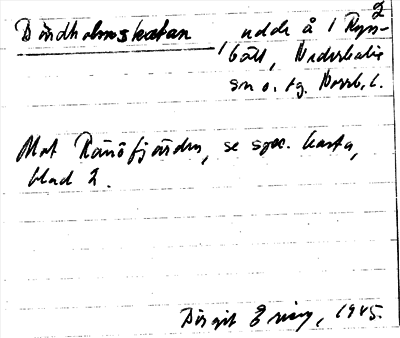 2
Bondholmskatan, udde å 1 Ryss-
bält, Nederkalix
sn o. tg. Norrb. l.
Mot Rånöfjärden, se spec. karta,
blad 2.
Birgit Ering, 1945.